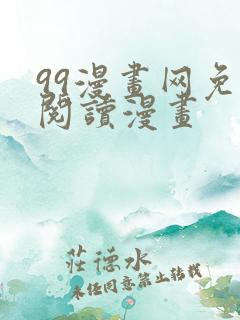 99漫畫网免
閱讀漫畫
莊德水
未经同意禁止转载